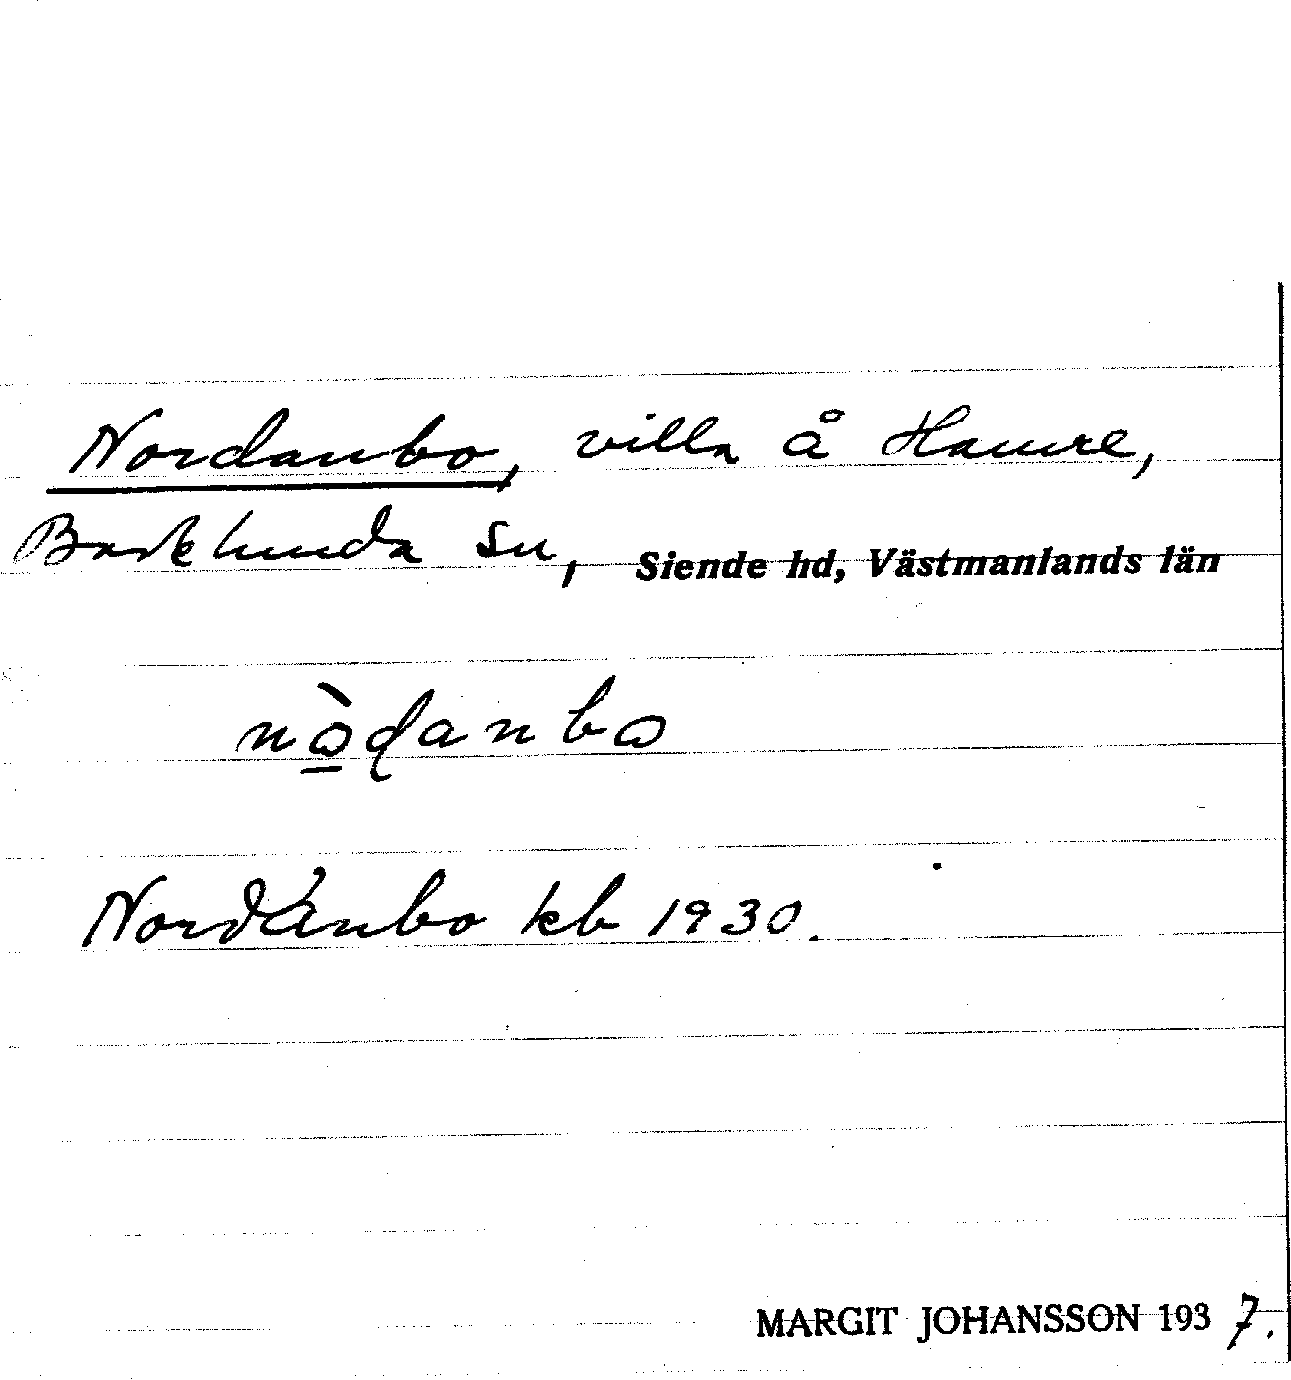 Nordanbo, villa å Hamre,
Barkhunda sn, Siende hd, Västmanlands län
nò̱ɖanbo
Nordanbo kb 1930.
MARGIT JOHANSSON 1937.